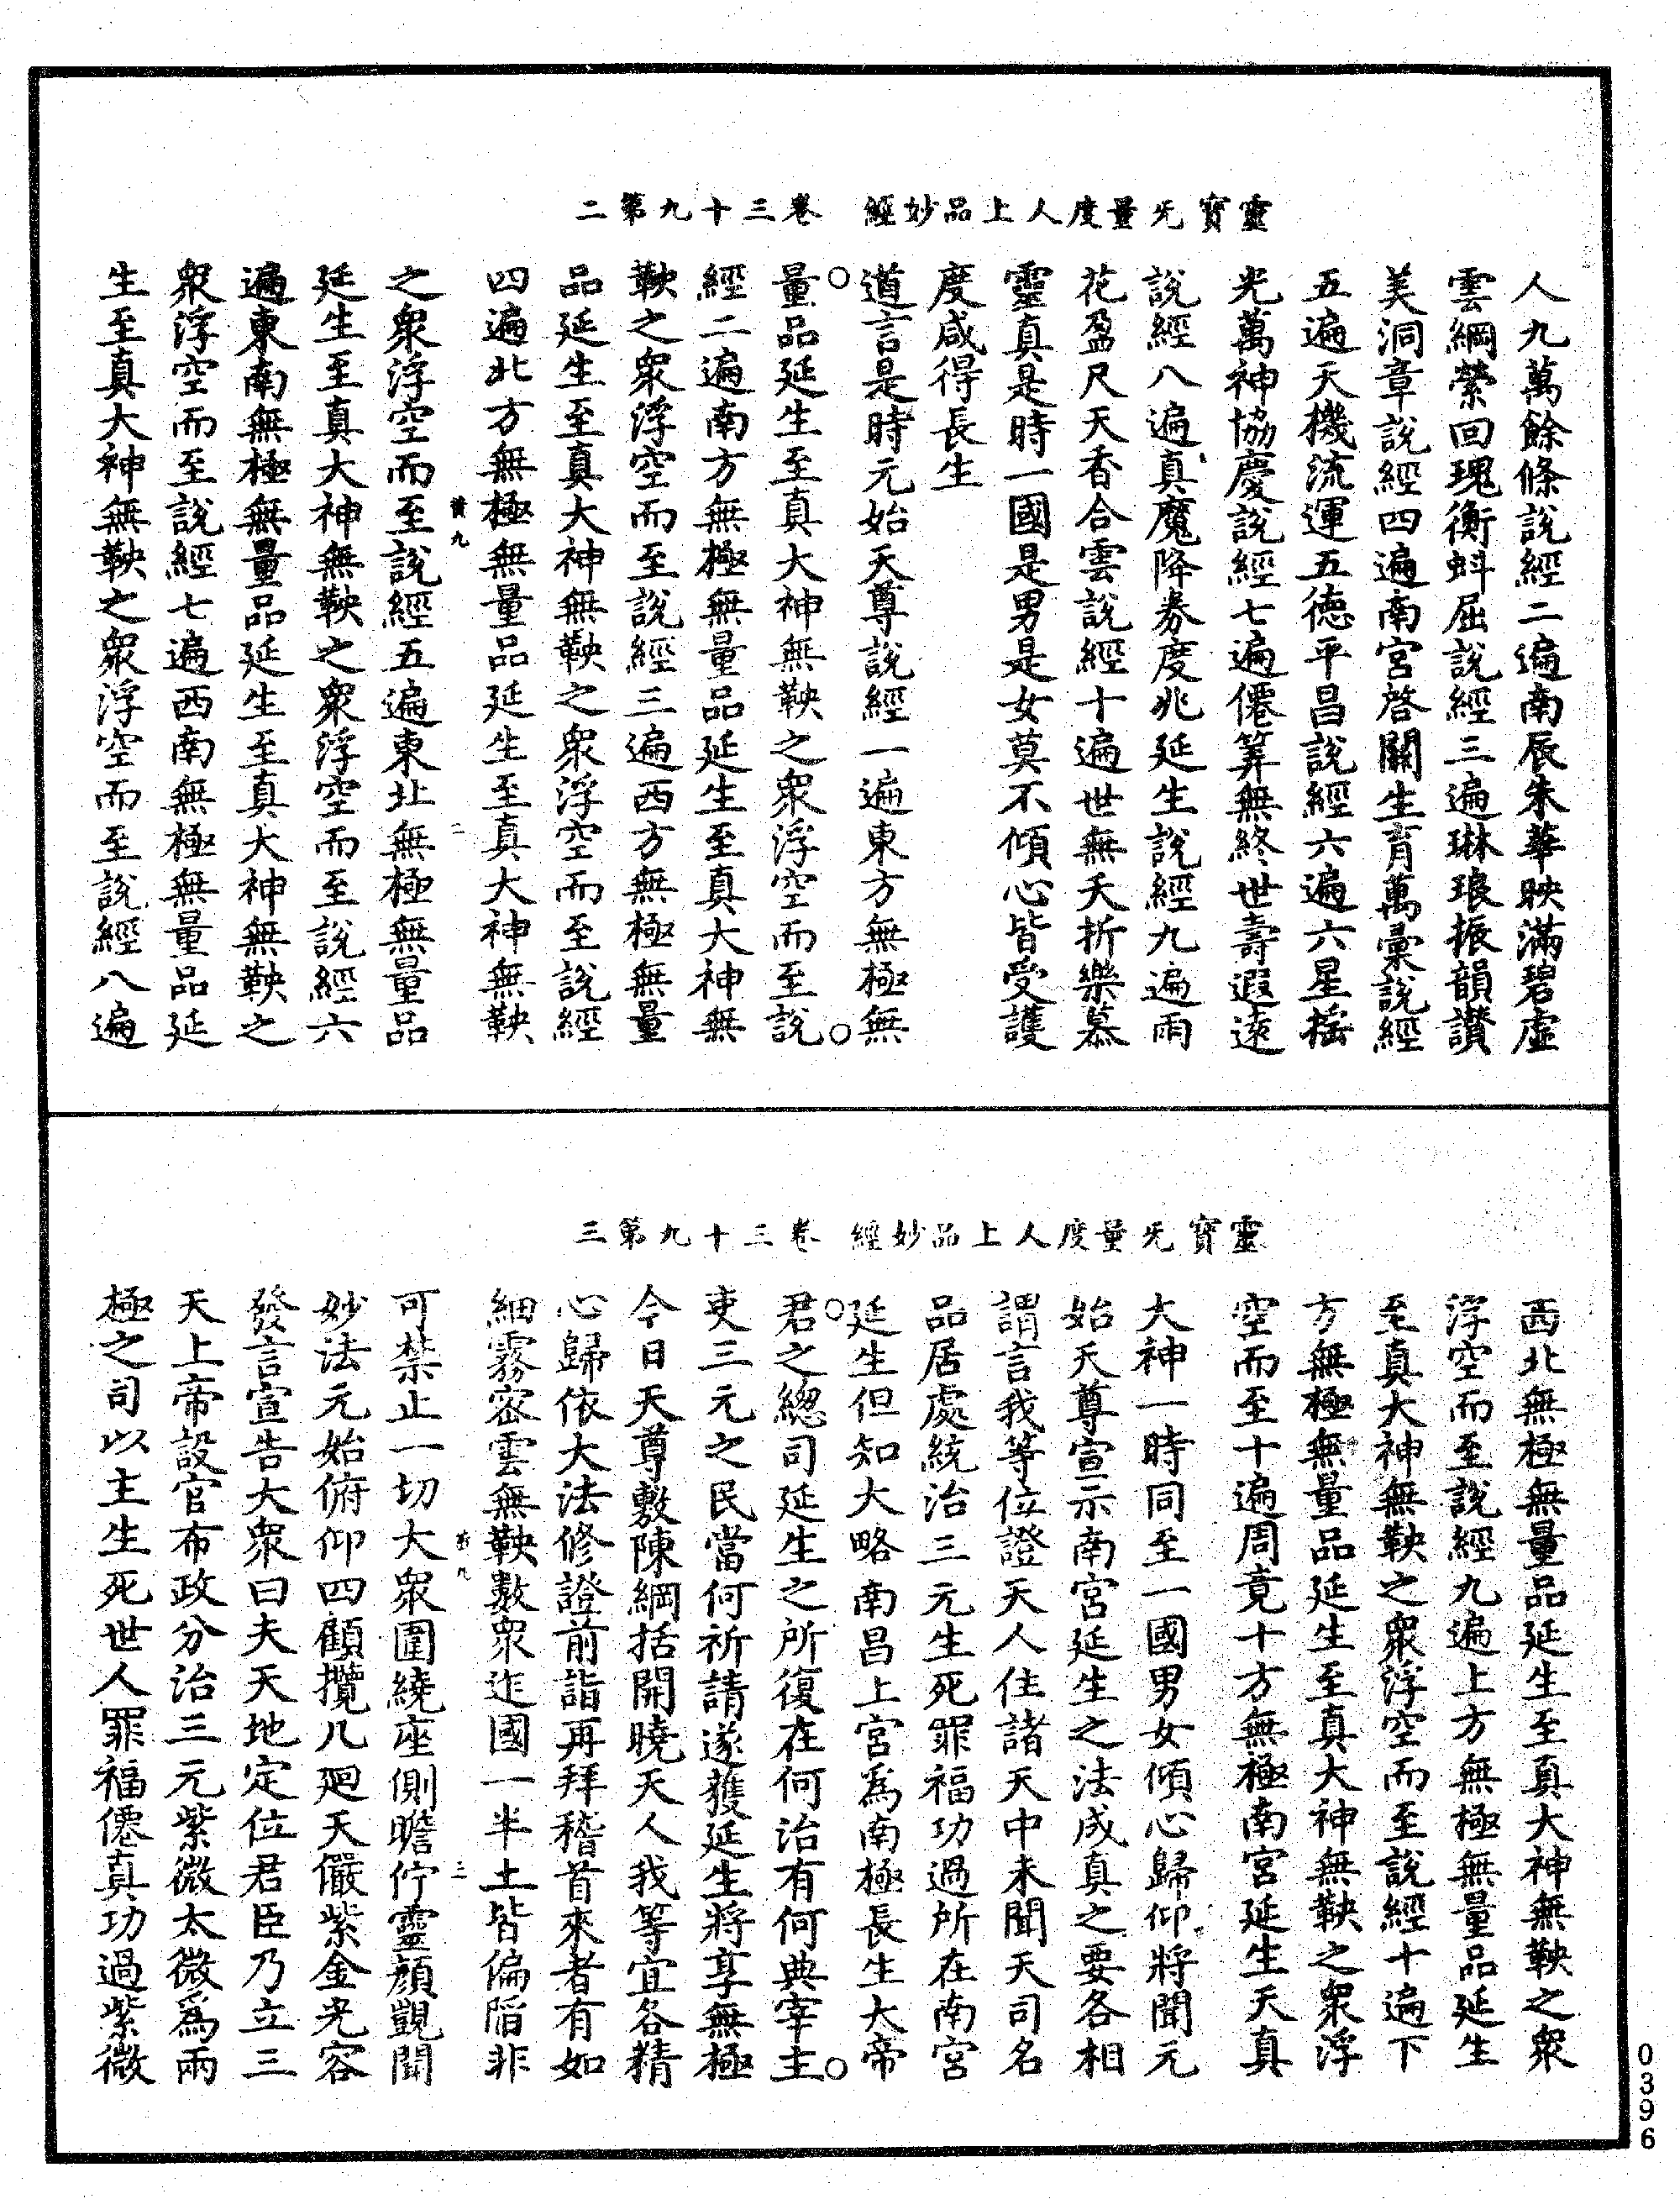 靈寶无量度人上品妙經 卷三十九第二
人九萬餘條說經二遍南辰朱華映滿碧虛
雲綱縈回瑰衡蚪屈說經三遍琳琅振韻讚
美洞章說經四遍南宮啓關生育萬彚說經
五遍天機流運五德平昌說經六遍六星搖
光萬神協慶說經七遍僊筭無終世壽遐遠
說經八遍真魔降券度兆延生說經九遍雨
花盈尺天香合雲說經十遍世無夭折樂慕
靈真是時一國是男是女莫不傾心皆受護
度咸得長生
道言是時元始天尊說經一遍東方無極無
量品延生至真大神無鞅之衆浮空而至說
經二遍南方無極無量品延生至真大神無
鞅之衆浮空而至說經三遍西方無極無量
品延生至真大神無鞅之衆浮空而至說經
四遍北方無極無量品延生至真大神無鞅
之衆浮空而至說經五遍東北無極無量品
延生至真大神無鞅之衆浮空而至說經六
遍東南無極無量品延生至真大神無鞅之
衆浮空而至說經七遍西南無極無量品延
生至真大神無鞅之衆浮空而至說經八遍
靈寶无量度人上品妙經 卷三十九第三
西北無極無量品延生至真大神無鞅之衆
浮空而至說經九遍上方無極無量品延生
至真大神無鞅之衆浮空而至說經十遍下
方無極無量品延生至真大神無鞅之衆浮
空而至十遍周竟十方無極南宮延生天真
大神一時同至一國男女傾心歸仰將聞元
始天尊宣示南宮延生之法成真之要各相
謂言我等位證天人住諸天中未聞天司名
品居處統治三元生死罪福功過所在南宮
延生但知大略南昌上宮爲南極長生大帝
君之總司延生之所復在何治有何典宰主
吏三元之民當何祈請遂獲延生將享無極
今日天尊敷陳綱括開曉天人我等宜各精
心歸依大法修證前詣再拜稽首來者有如
細霧密雲無鞅數衆迮國一半土皆偏陷非
可禁止一切大衆圍繞座側瞻佇靈顏覬聞
妙法元始俯仰四顧攬几廻天儼紫金光容
發言宣告大衆曰夫天地定位君臣乃立三
天上帝設官布政分治三元紫微太微爲兩
極之司以主生死世人罪福僊真功過紫微
0396